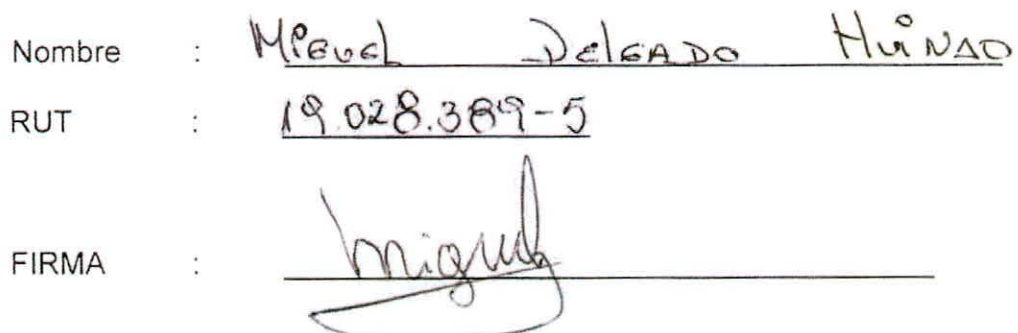 Nombre : Miguel Delgado Huinao
RUT : 19.028.389-5
FIRMA : Miguel